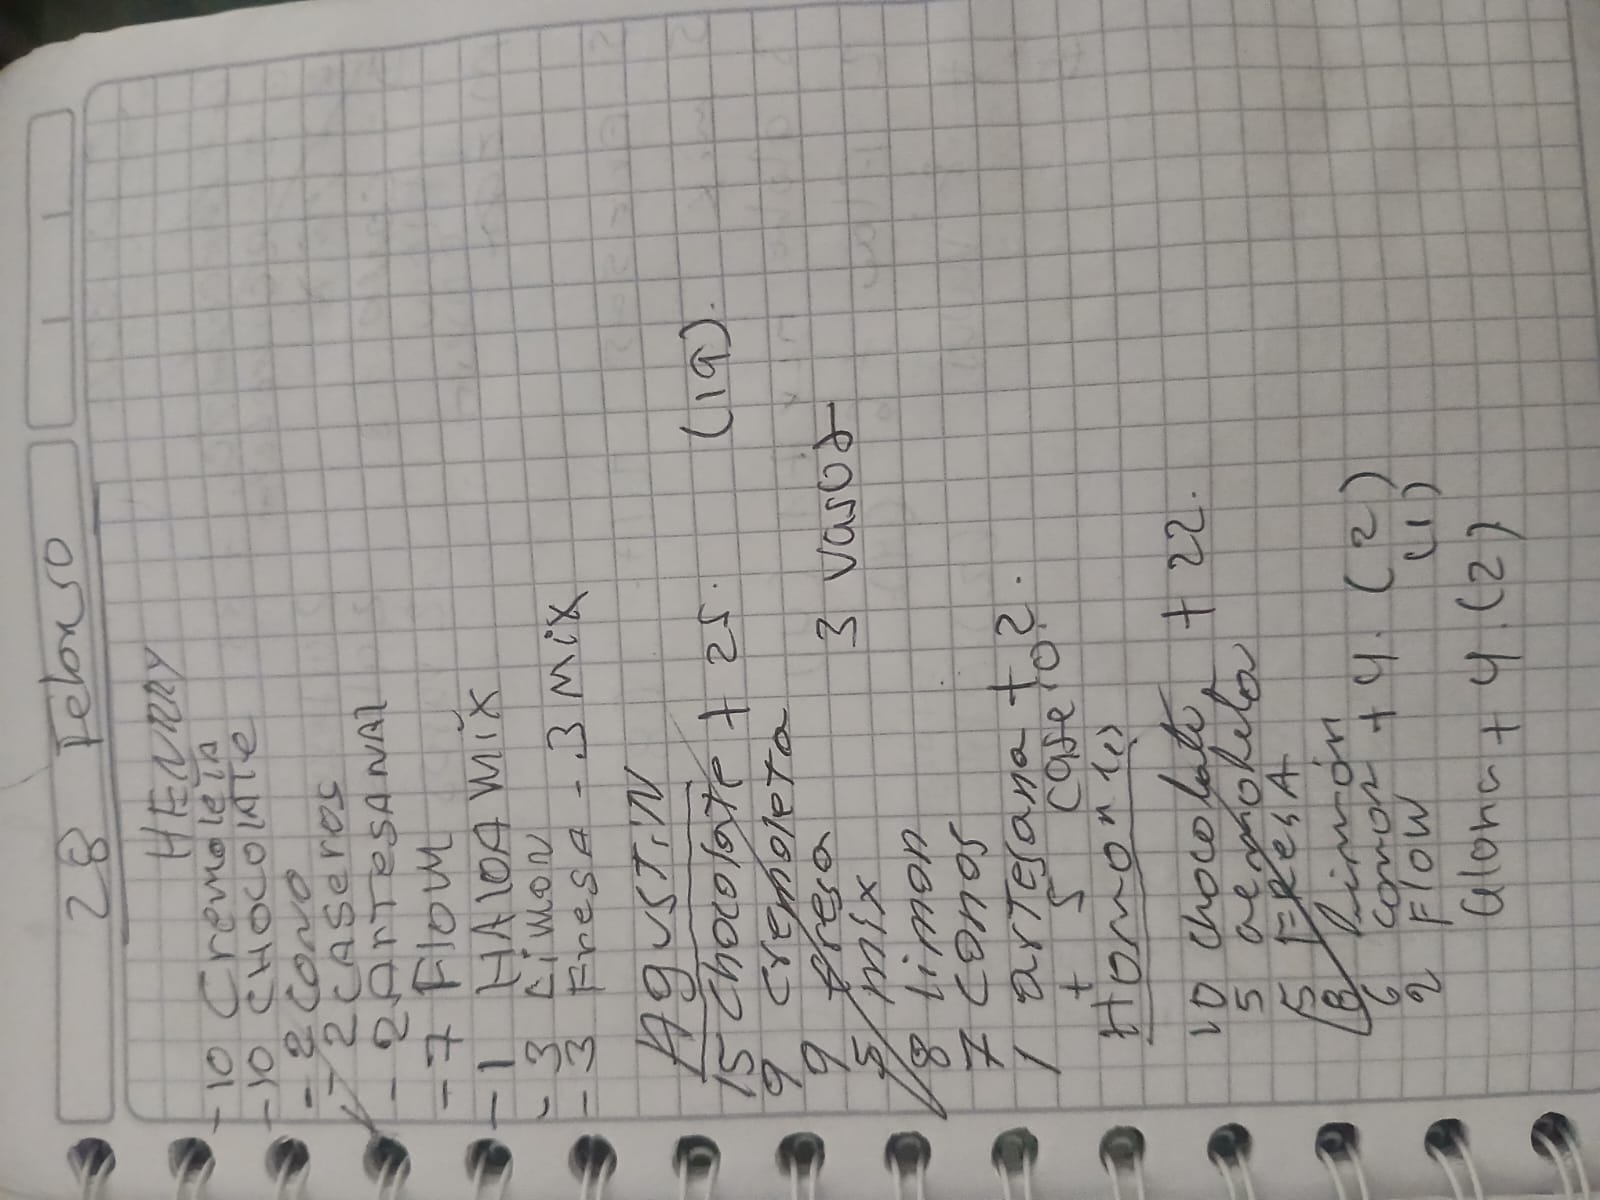 28 Febrero
HENRRY
-10 Cremoleta
-10 CHOCOLATE
-2 Cono
-2 CASeros
-2 ArTesANAL
-7 Flow
-1 HAlOA MiX
-3 LiMON
-3 Fresa - 3 Mix
AgusTiN
15 chocolate + 25. (19).
9 cremoleta
9 fresa 3 vasos
5 mix
8 limon
7 conos
1 arTesana + 2.
+ 5 case
10 chocolate + 22.
5 FresA
8 limón
6 + 4. (2)
2 Flow (1)
+ 4. (2)